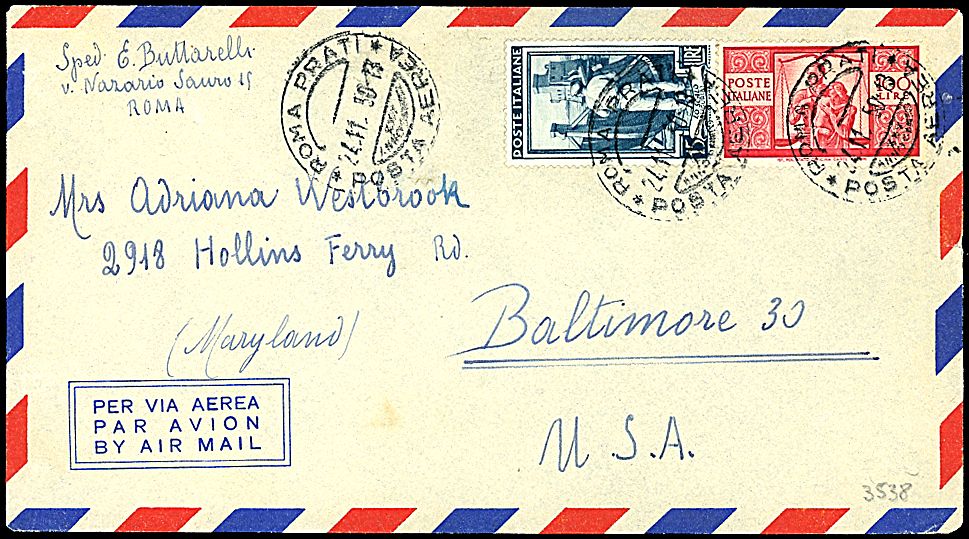 Sped. E. Buttarelli
v. Nazario Sauro 15
ROMA
* ROMA PRATI * POSTA AEREA
24.11.50-13
POSTE ITALIANE
LIRE
15
POSTE
ITALIANE
100
LIRE
* ROMA PRATI * POSTA AEREA
* ROMA PRATI * POSTA AEREA
Mrs Adriana Westbrook
2918 Hollins Ferry Rd.
Baltimore 30
(Maryland)
U.S.A.
PER VIA AEREA
PAR AVION
BY AIR MAIL
3538